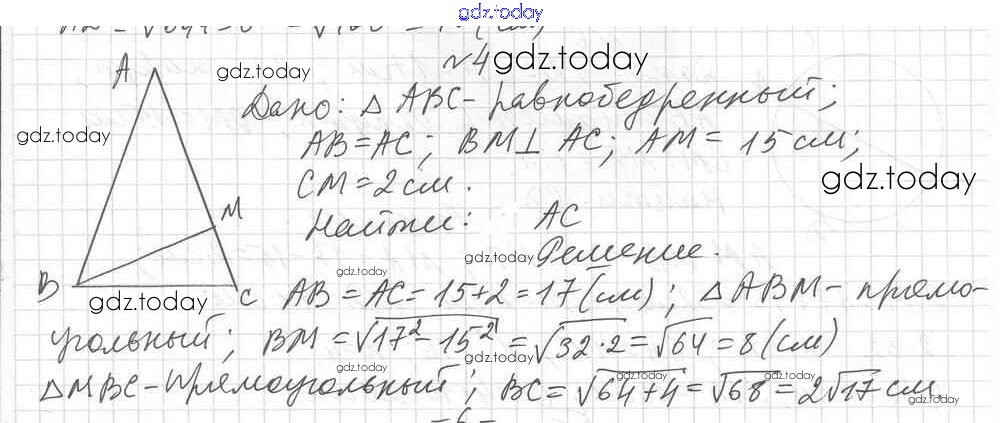 gdz.today
№4 gdz.today
A gdz.today
Дано: △ ABC - равнобедренный;
gdz.today
AB = AC; BM ⊥ AC; AM = 15 см;
CM = 2 см. gdz.today
M Найти: AC
gdz.today Решение.
B gdz.today C gdz.today AB = AC = 15 + 2 = 17 (см); △ ABM - прямо-
угольный; BM = √17² - 15² = √32 · 2 = √64 = 8 (см)
gdz.today gdz.today gdz.today
△ MBC - прямоугольный; BC = √64 + 4 = √68 = 2√17 см.
gdz.today gdz.today
- 6 -